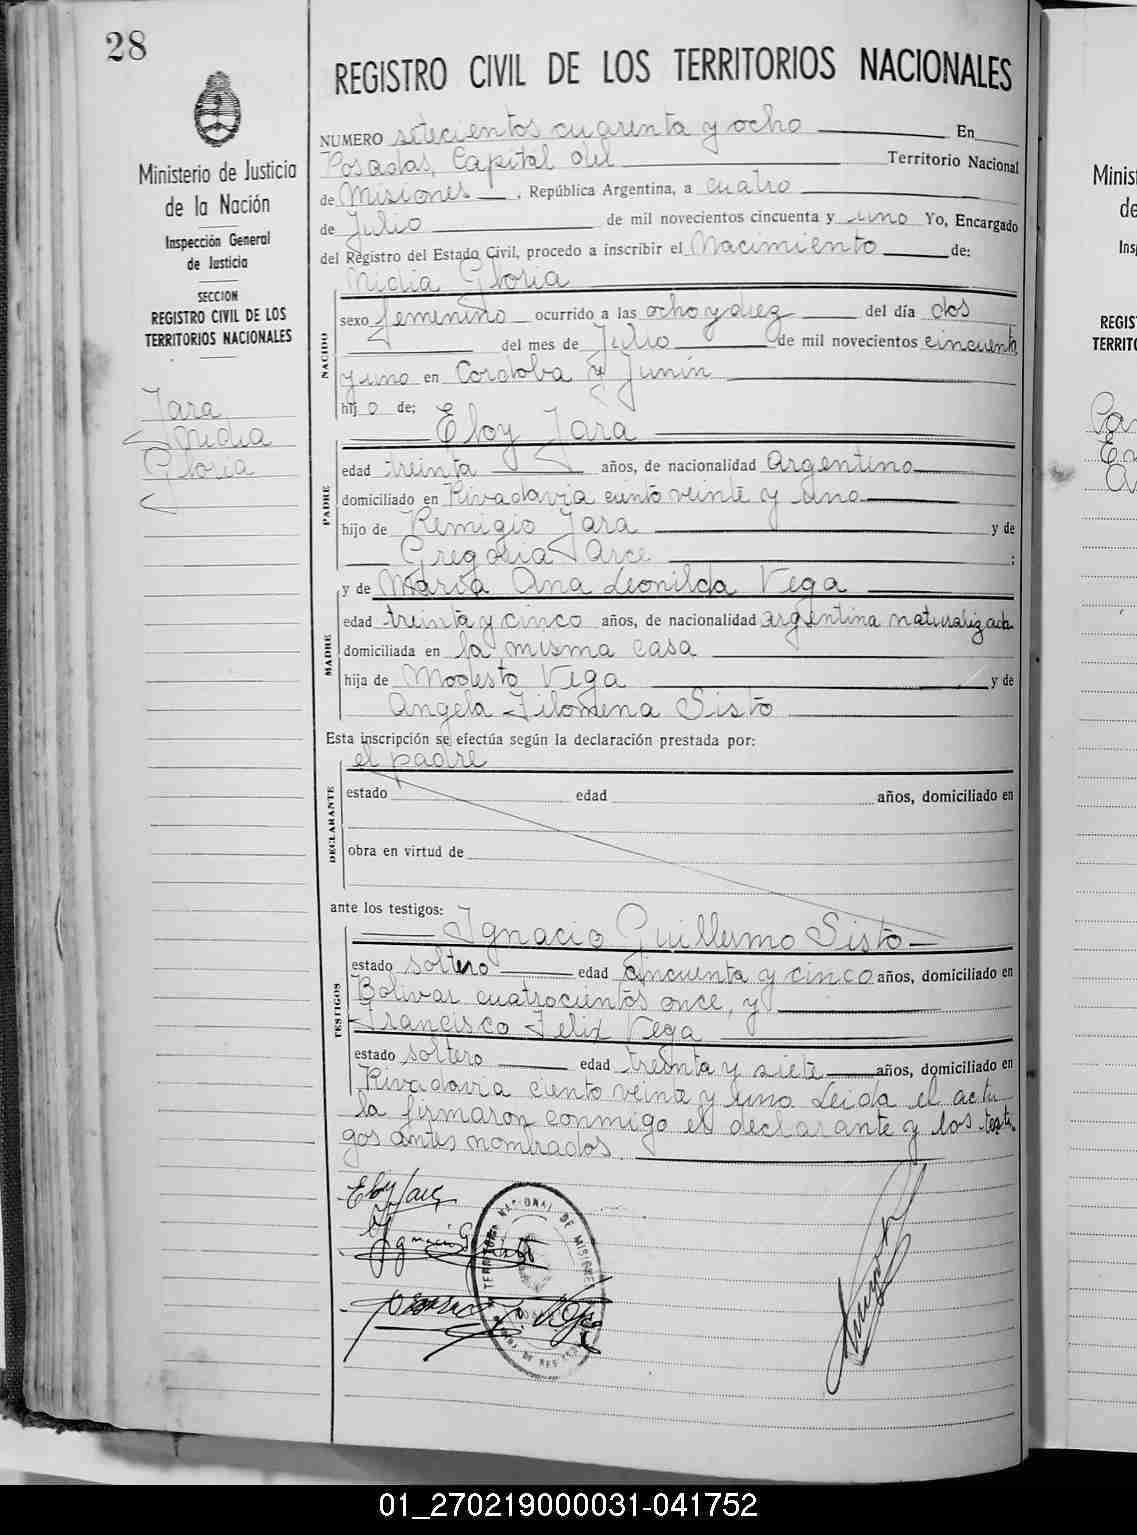 28
REGISTRO CIVIL DE LOS TERRITORIOS NACIONALES
Ministerio de Justicia
de la Nación
Inspección General
de Justicia
SECCION
REGISTRO CIVIL DE LOS
TERRITORIOS NACIONALES
Jara
Nidia
Gloria
NUMERO setecientos cuarenta y ocho En
Posadas, Capital del Territorio Nacional
de Misiones, República Argentina, a cuatro
de Julio de mil novecientos cincuenta y uno Yo, Encargado
del Registro del Estado Civil, procedo a inscribir el Nacimiento de:
Nidia Gloria
NACIDO
sexo femenino ocurrido a las ocho y diez del día dos
del mes de Julio de mil novecientos cincuenta
y uno en Cordoba y Junin
hijo de:
Eloy Jara
PADRE
edad treinta años, de nacionalidad argentino
domiciliado en Rivadavia ciento veinte y uno
hijo de Remigio Jara y de
Gregoria Arce ;
y de Maria Ana Leonilda Vega
MADRE
edad treinta y cinco años, de nacionalidad argentina naturalizada
domiciliada en la misma casa
hija de Modesto Vega y de
Angela Filomena Sisto
Esta inscripción se efectúa según la declaración prestada por:
el padre
DECLARANTE
estado edad años, domiciliado en
obra en virtud de
ante los testigos:
Ignacio Guillermo Sisto
TESTIGOS
estado soltero edad cincuenta y cinco años, domiciliado en
Bolivar cuatrocientos once, y
Francisco Felix Vega
estado soltero edad treinta y siete años, domiciliado en
Rivadavia ciento veinte y uno. Leida el acta
la firmaron conmigo el declarante y los testi-
gos antes nombrados.
Eloy Jara
TERRITORIO NACIONAL DE MISIONES
Minis
de
Ins
REGIS
TERRITO
01_270219000031-041752